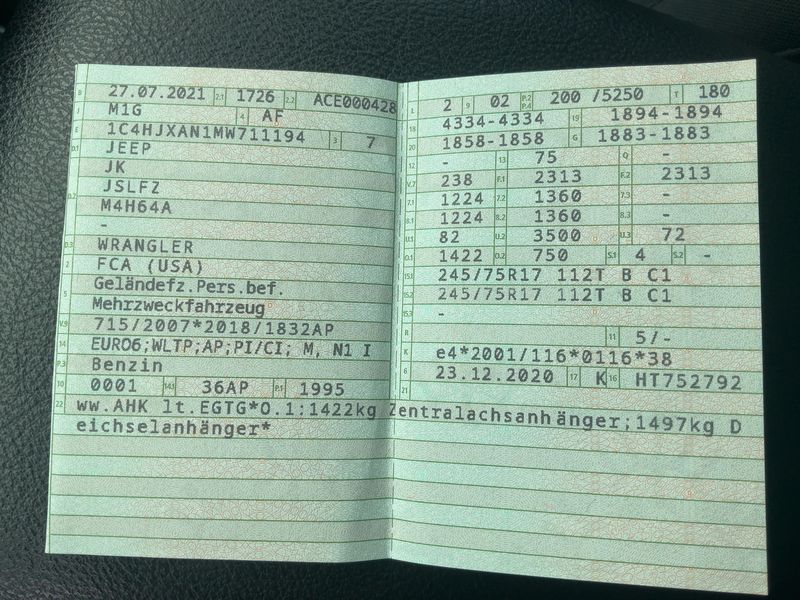 B 27.07.2021 2.1 1726 2.2 ACE000428
J M1G 4 AF
E 1C4HJXAN1MW711194 3 7
D.1 JEEP
JK
D.2 JSLFZ
M4H64A
-
D.3 WRANGLER
2 FCA (USA)
5 Geländefz.Pers.bef.
Mehrzweckfahrzeug
V.9 715/2007*2018/1832AP
14 EURO6;WLTP;AP;PI/CI; M, N1 I
P.3 Benzin
10 0001 14.1 36AP P.1 1995
22 ww.AHK lt.EGTG*O.1:1422kg Zentralachsanhänger;1497kg D
eichselanhänger*
L 2 9 02 P.2 P.4 200 /5250 T 180
18 4334-4334 19 1894-1894
20 1858-1858 G 1883-1883
12 - 13 75 Q -
V.7 238 F.1 2313 F.2 2313
7.1 1224 7.2 1360 7.3 -
8.1 1224 8.2 1360 8.3 -
U.1 82 U.2 3500 U.3 72
O.1 1422 O.2 750 S.1 4 S.2 -
15.1 245/75R17 112T B C1
15.2 245/75R17 112T B C1
15.3 -
R 11 5/-
K e4*2001/116*0116*38
6 23.12.2020 17 K 16 HT752792
21